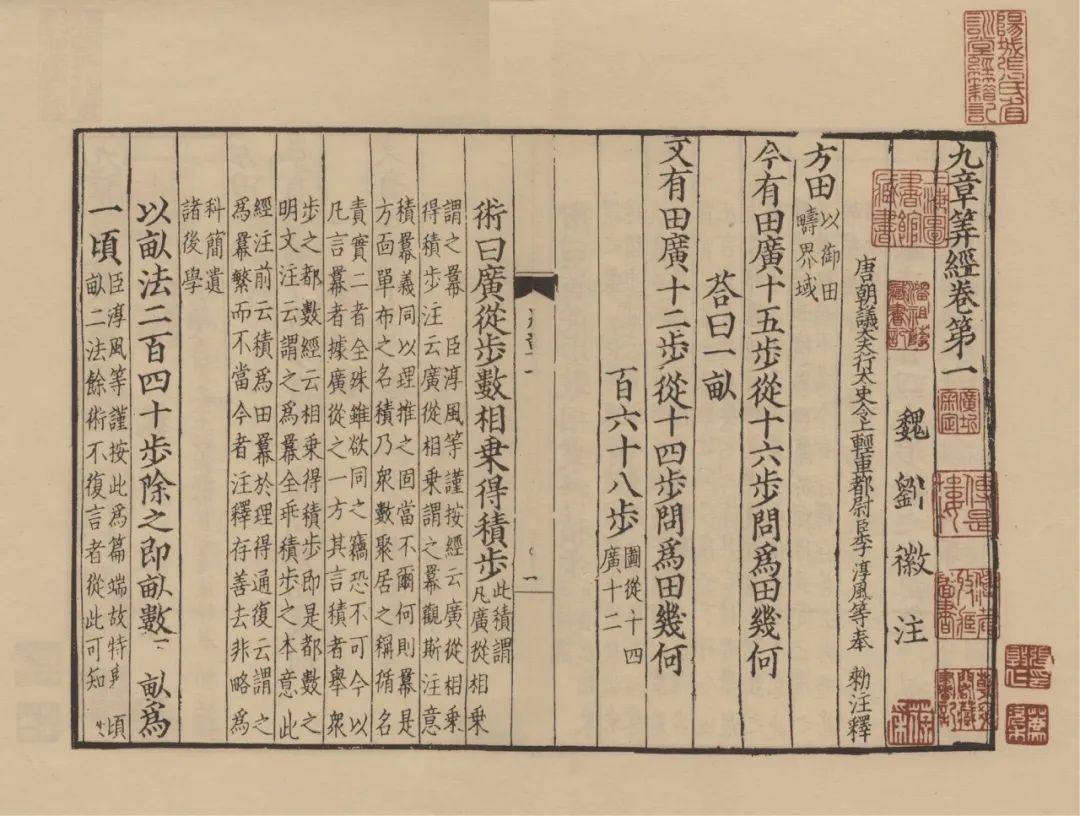 九章筭經卷第一
魏 劉 徽 注
唐朝議大夫行太史令上輕車都尉臣李淳風等奉 勑注釋
方田 以御田
疇界域
今有田廣十五步從十六步問爲田幾何
荅曰一畝
又有田廣十二步從十四步問爲田幾何
百六十八步 圖從十四
廣十二
術曰廣從步數相乗得積步 此積謂
凡廣從相乗
謂之羃 臣淳風等謹按經云廣從相乗
得積步注云廣從相乗謂之羃觀斯注意
積羃義同以理推之固當不爾何則羃是
方面單布之名積乃衆數聚居之稱循名
責實二者全殊雖欲同之竊恐不可今以
凡言羃者據廣從之一方其言積者舉衆
步之都數經云相乗得積步即是都數之
明文注云謂之爲羃全乖積步之本意此
經注前云積爲田羃於理得通復云謂之
爲羃繁而不當今者注釋存善去非略爲
科簡遺
諸後學
以畝法二百四十步除之即畝數 畝爲
一頃 臣淳風等謹按此爲篇端故特 頃
畝二法餘術不復言者從此可知
陽城張氏省
訓堂經籍記